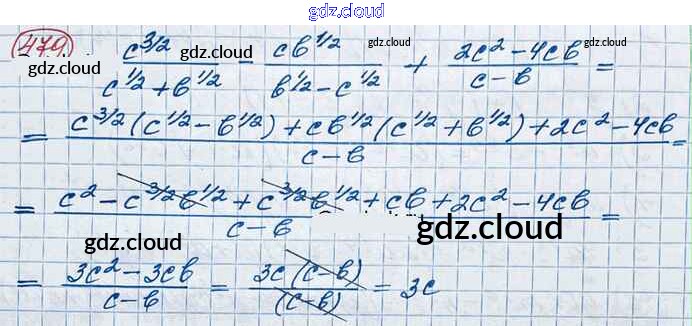 gdz.cloud
479 c^{3/2}/(c^{1/2} + b^{1/2}) - cb^{1/2}/(b^{1/2} - c^{1/2}) + (2c² - 4cb)/(c - b) =
gdz.cloud gdz.cloud gdz.cloud gdz.cloud
= (c^{3/2}(c^{1/2} - b^{1/2}) + cb^{1/2}(c^{1/2} + b^{1/2}) + 2c² - 4cb)/(c - b) =
= (c² - c^{3/2}b^{1/2} + c^{3/2}b^{1/2} + cb + 2c² - 4cb)/(c - b) =
gdz.cloud gdz.cloud
= (3c² - 3cb)/(c - b) = 3c(c - b)/(c - b) = 3c
gdz.cloud